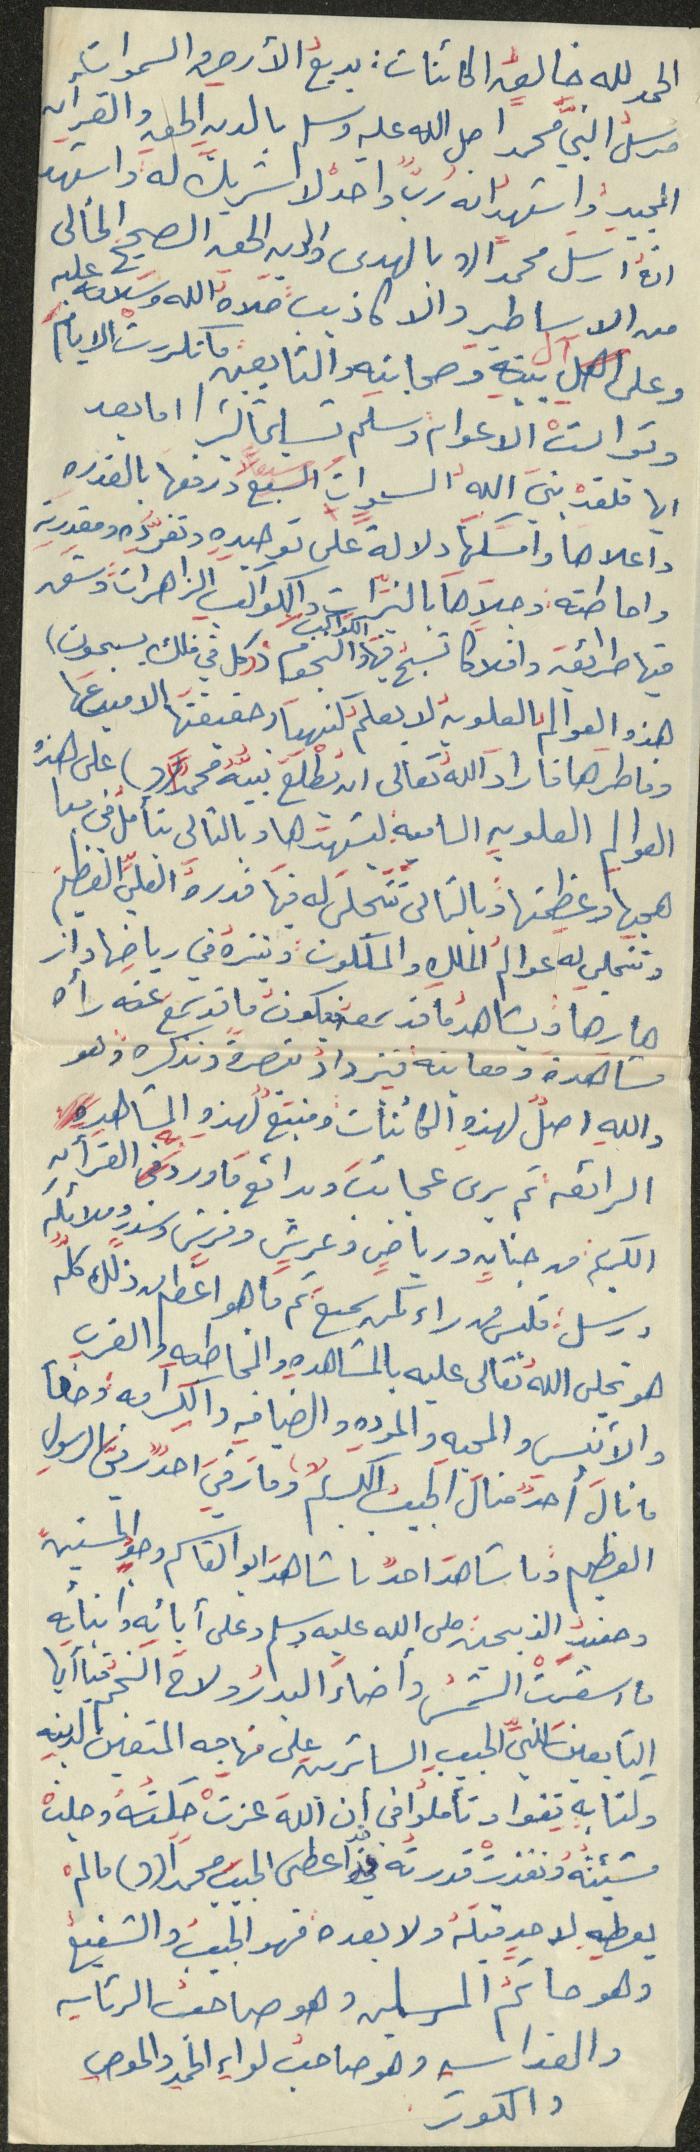 الحمد لله خالق الكائنات: بديع الأرض والسموات
مرسل النبي محمدا صلى الله عليه وسلم بالدين الحق والقرآن
المجيد وأشهد انه رب واحد لا شريك له وأشهد
انه أرسل محمدا (ص) بالهدى والدين الحق الصحيح الخالي
من الاساطير والاكاذيب صلاة الله وسلامه عليه
وعلى آل بيته وصحابته والتابعين ما تكررت الايام
وتوالت الاعوام وسلم تسليما كثيرا اما بعد
ايها فلقد بنى الله السموات السبع ورفعها بالقدره
وأعلاها وأمسكها دلالة على توحيده وتفرده ومقدرته
واحاطته: وجلاها بالنيرات والكواكب الزاهرات وشق
فيها طرائق وافلاكا تسبح فيها الكواكب والنجوم (وكل في فلك يسبحون)
هذه العوالم العلوية لا يعلم كنهها وحقيقتها الا مبدعها
وفاطرها فاراد الله تعالى ان يطلع نبيه محمدا (ص) على هذه
العوالم العلويه الساميه ليشهدها وبالتالى يتأمل في
وعظمتها وبالتالى تتجلى له فيها قدرة العلي العظيم
وتتجلى له عوالم الملك والملكوت ويتنزه في رياضها واز
هارها ويشاهد ما قد سمعه فيكون ما قد سمع عنه رآه
مشاهدة ومعاينة فيزداد تبصرة وتذكره وهو
والله اصل لهذه الكائنات ومنبع لهذه المشاهد
الرائعه ثم يرى عجائب وبدائع ما ورد به القرآن
الكريم من جنان ورياض وعرش وفرش وسدر وملائكه
ورسل: فليس من راء كمن سمع ثم ما هو اعظم من ذلك كله
هو تجلي الله تعالى عليه بالمشاهده والمخاطبه والقرب
والأنس والمحبه والموده والضيافه والكرامه: وحقا
ما نال أحد منال الحبيب الكريم وما رقي احد رقي الرسول
العظيم وما شاهد احد ما شاهد ابو القاسم وجد الحسنين
وحفيد الذبيحين صلى الله عليه وسلم وعلى أبائه وأبنائه
ما اشرقت الشمس وأضاء البدر ولاح النجم فيا أيها
التابعين للنبي الحبيب السائرين على منهاجه المتقين لدينه
وكتابه قفوا وتأملوا في أن الله عزت حكمته وجلت
مشيئته ونفذت قدرته قد أعطى الحبيب محمدا (ص) مالم
يعطيه لاحد قبله ولا بعده فهو الحبيب والشفيع
وهو خاتم المرسلين وهو صاحب الرئاسه
والقداسه وهو صاحب لواء الحمد والحوض
والكوثر